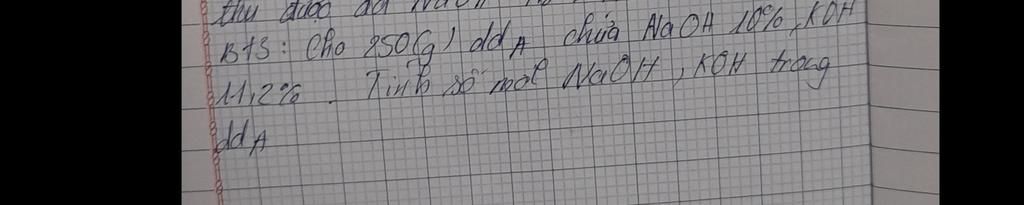 thu được dd NaOH
Bt3: Cho 250(g) dd A chứa NaOH 10%, KOH
11,2%. Tính số mol NaOH, KOH trong
dd A